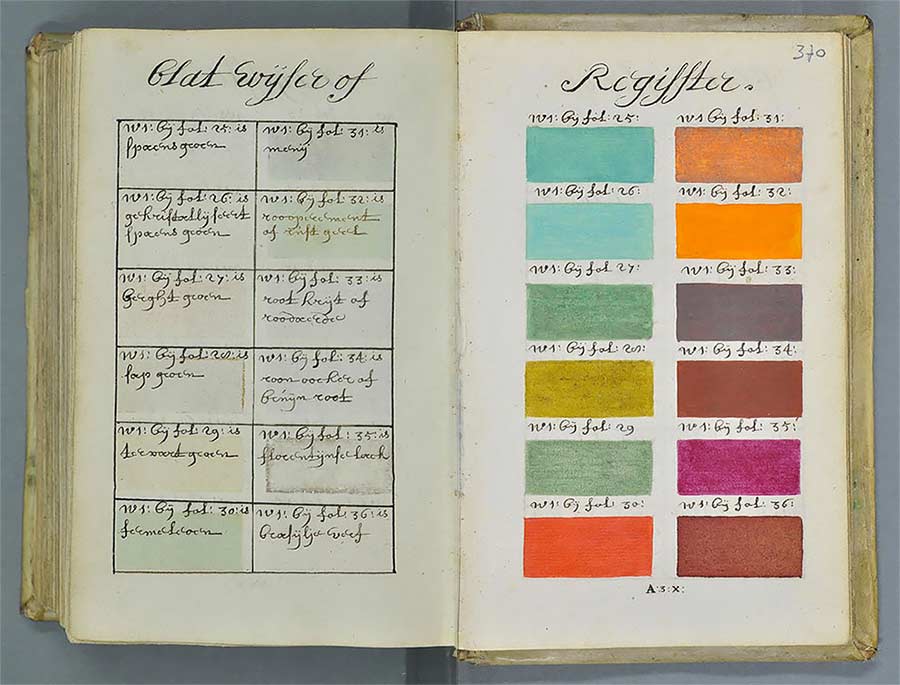 blat wijser of
w1: bij fol: 25: is
spaens groen
w1: bij fol: 31: is
menij
w1: bij fol: 26: is
gekristallijseert
spaens groen
w1: bij fol: 32: is
of rust geel
w1: bij fol: 27: is
berght groen
w1: bij fol: 33: is
root krijt of
roodaerde
w1: bij fol: 28: is
sap groen
w1: bij fol: 34: is
roon oocker of
bruijn root
w1: bij fol: 29: is
groen
w1: bij fol: 35: is
florentijnse lack
w1: bij fol: 30: is
w1: bij fol: 36: is
brasijlje verf
370
Regisster.
w1: bij fol: 25:
w1 bij fol: 31:
w1: bij fol: 26:
w1: bij fol: 32:
w1: bij fol: 27:
w1: bij fol: 33:
w1: bij fol: 28:
w1: bij fol: 34:
w1: bij fol: 29
w1: bij fol: 35:
w1: bij fol: 30:
w1: bij fol: 36:
A:3:X: